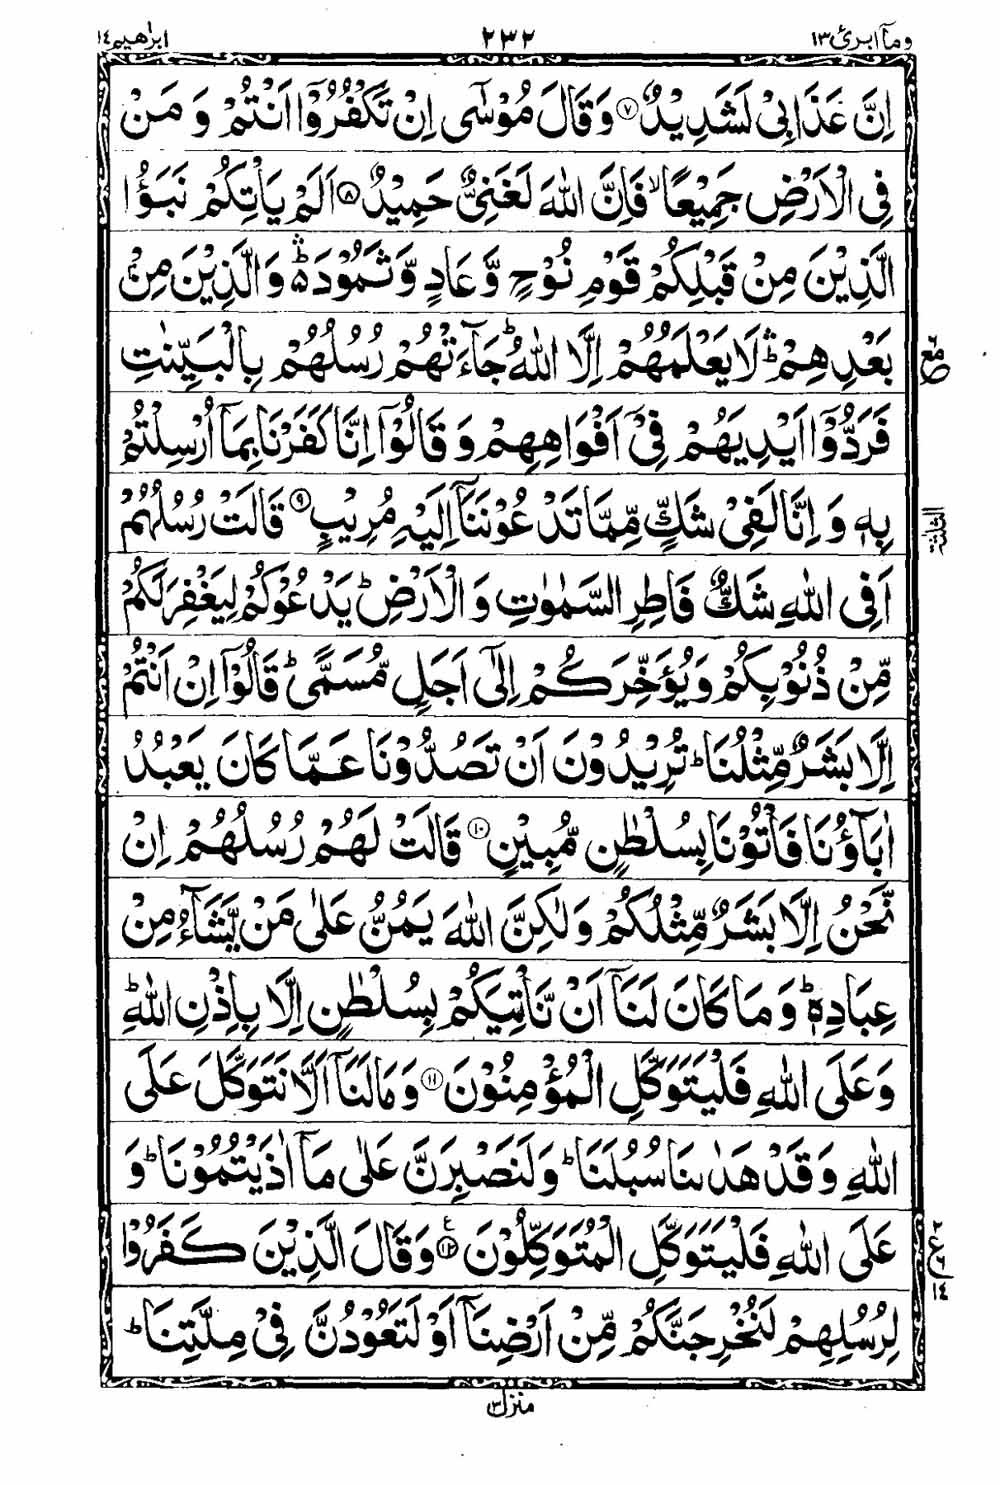 وما ابرئ ١٣
٢٣٢
ابراهيم ١٤
اِنَّ عَذَابِىْ لَشَدِيْدٌ ۝۷ وَقَالَ مُوْسٰٓى اِنْ تَكْفُرُوْٓا اَنْتُمْ وَ مَنْ
فِى الْاَرْضِ جَمِيْعًا ۙ فَاِنَّ اللّٰهَ لَغَنِىٌّ حَمِيْدٌ ۝۸ اَلَمْ يَاْتِكُمْ نَبَؤُا
الَّذِيْنَ مِنْ قَبْلِكُمْ قَوْمِ نُوْحٍ وَّ عَادٍ وَّ ثَمُوْدَ ۛؕ وَ الَّذِيْنَ مِنْۢ
بَعْدِهِمْ ۛؕ لَا يَعْلَمُهُمْ اِلَّا اللّٰهُ ؕ جَآءَتْهُمْ رُسُلُهُمْ بِالْبَيِّنٰتِ
فَرَدُّوْٓا اَيْدِيَهُمْ فِىْٓ اَفْوَاهِهِمْ وَ قَالُوْٓا اِنَّا كَفَرْنَا بِمَآ اُرْسِلْتُمْ
بِهٖ وَ اِنَّا لَفِىْ شَكٍّ مِّمَّا تَدْعُوْنَنَآ اِلَيْهِ مُرِيْبٍ ۝۹ قَالَتْ رُسُلُهُمْ
اَفِى اللّٰهِ شَكٌّ فَاطِرِ السَّمٰوٰتِ وَ الْاَرْضِ ؕ يَدْعُوْكُمْ لِيَغْفِرَ لَكُمْ
مِّنْ ذُنُوْبِكُمْ وَ يُؤَخِّرَكُمْ اِلٰٓى اَجَلٍ مُّسَمًّى ؕ قَالُوْٓا اِنْ اَنْتُمْ
اِلَّا بَشَرٌ مِّثْلُنَا ؕ تُرِيْدُوْنَ اَنْ تَصُدُّوْنَا عَمَّا كَانَ يَعْبُدُ
اٰبَآؤُنَا فَاْتُوْنَا بِسُلْطٰنٍ مُّبِيْنٍ ۝۱۰ قَالَتْ لَهُمْ رُسُلُهُمْ اِنْ
نَّحْنُ اِلَّا بَشَرٌ مِّثْلُكُمْ وَ لٰكِنَّ اللّٰهَ يَمُنُّ عَلٰى مَنْ يَّشَآءُ مِنْ
عِبَادِهٖ ؕ وَ مَا كَانَ لَنَآ اَنْ نَّاْتِيَكُمْ بِسُلْطٰنٍ اِلَّا بِاِذْنِ اللّٰهِ ؕ
وَ عَلَى اللّٰهِ فَلْيَتَوَكَّلِ الْمُؤْمِنُوْنَ ۝۱۱ وَ مَا لَنَآ اَلَّا نَتَوَكَّلَ عَلَى
اللّٰهِ وَ قَدْ هَدٰىنَا سُبُلَنَا ؕ وَ لَنَصْبِرَنَّ عَلٰى مَآ اٰذَيْتُمُوْنَا ؕ وَ
عَلَى اللّٰهِ فَلْيَتَوَكَّلِ الْمُتَوَكِّلُوْنَ ۝۱۲ ع وَ قَالَ الَّذِيْنَ كَفَرُوْا
لِرُسُلِهِمْ لَنُخْرِجَنَّكُمْ مِّنْ اَرْضِنَآ اَوْ لَتَعُوْدُنَّ فِىْ مِلَّتِنَا ؕ
٦ مع
الثلثة
٢ ع ٦ ١٤
منزل ٣